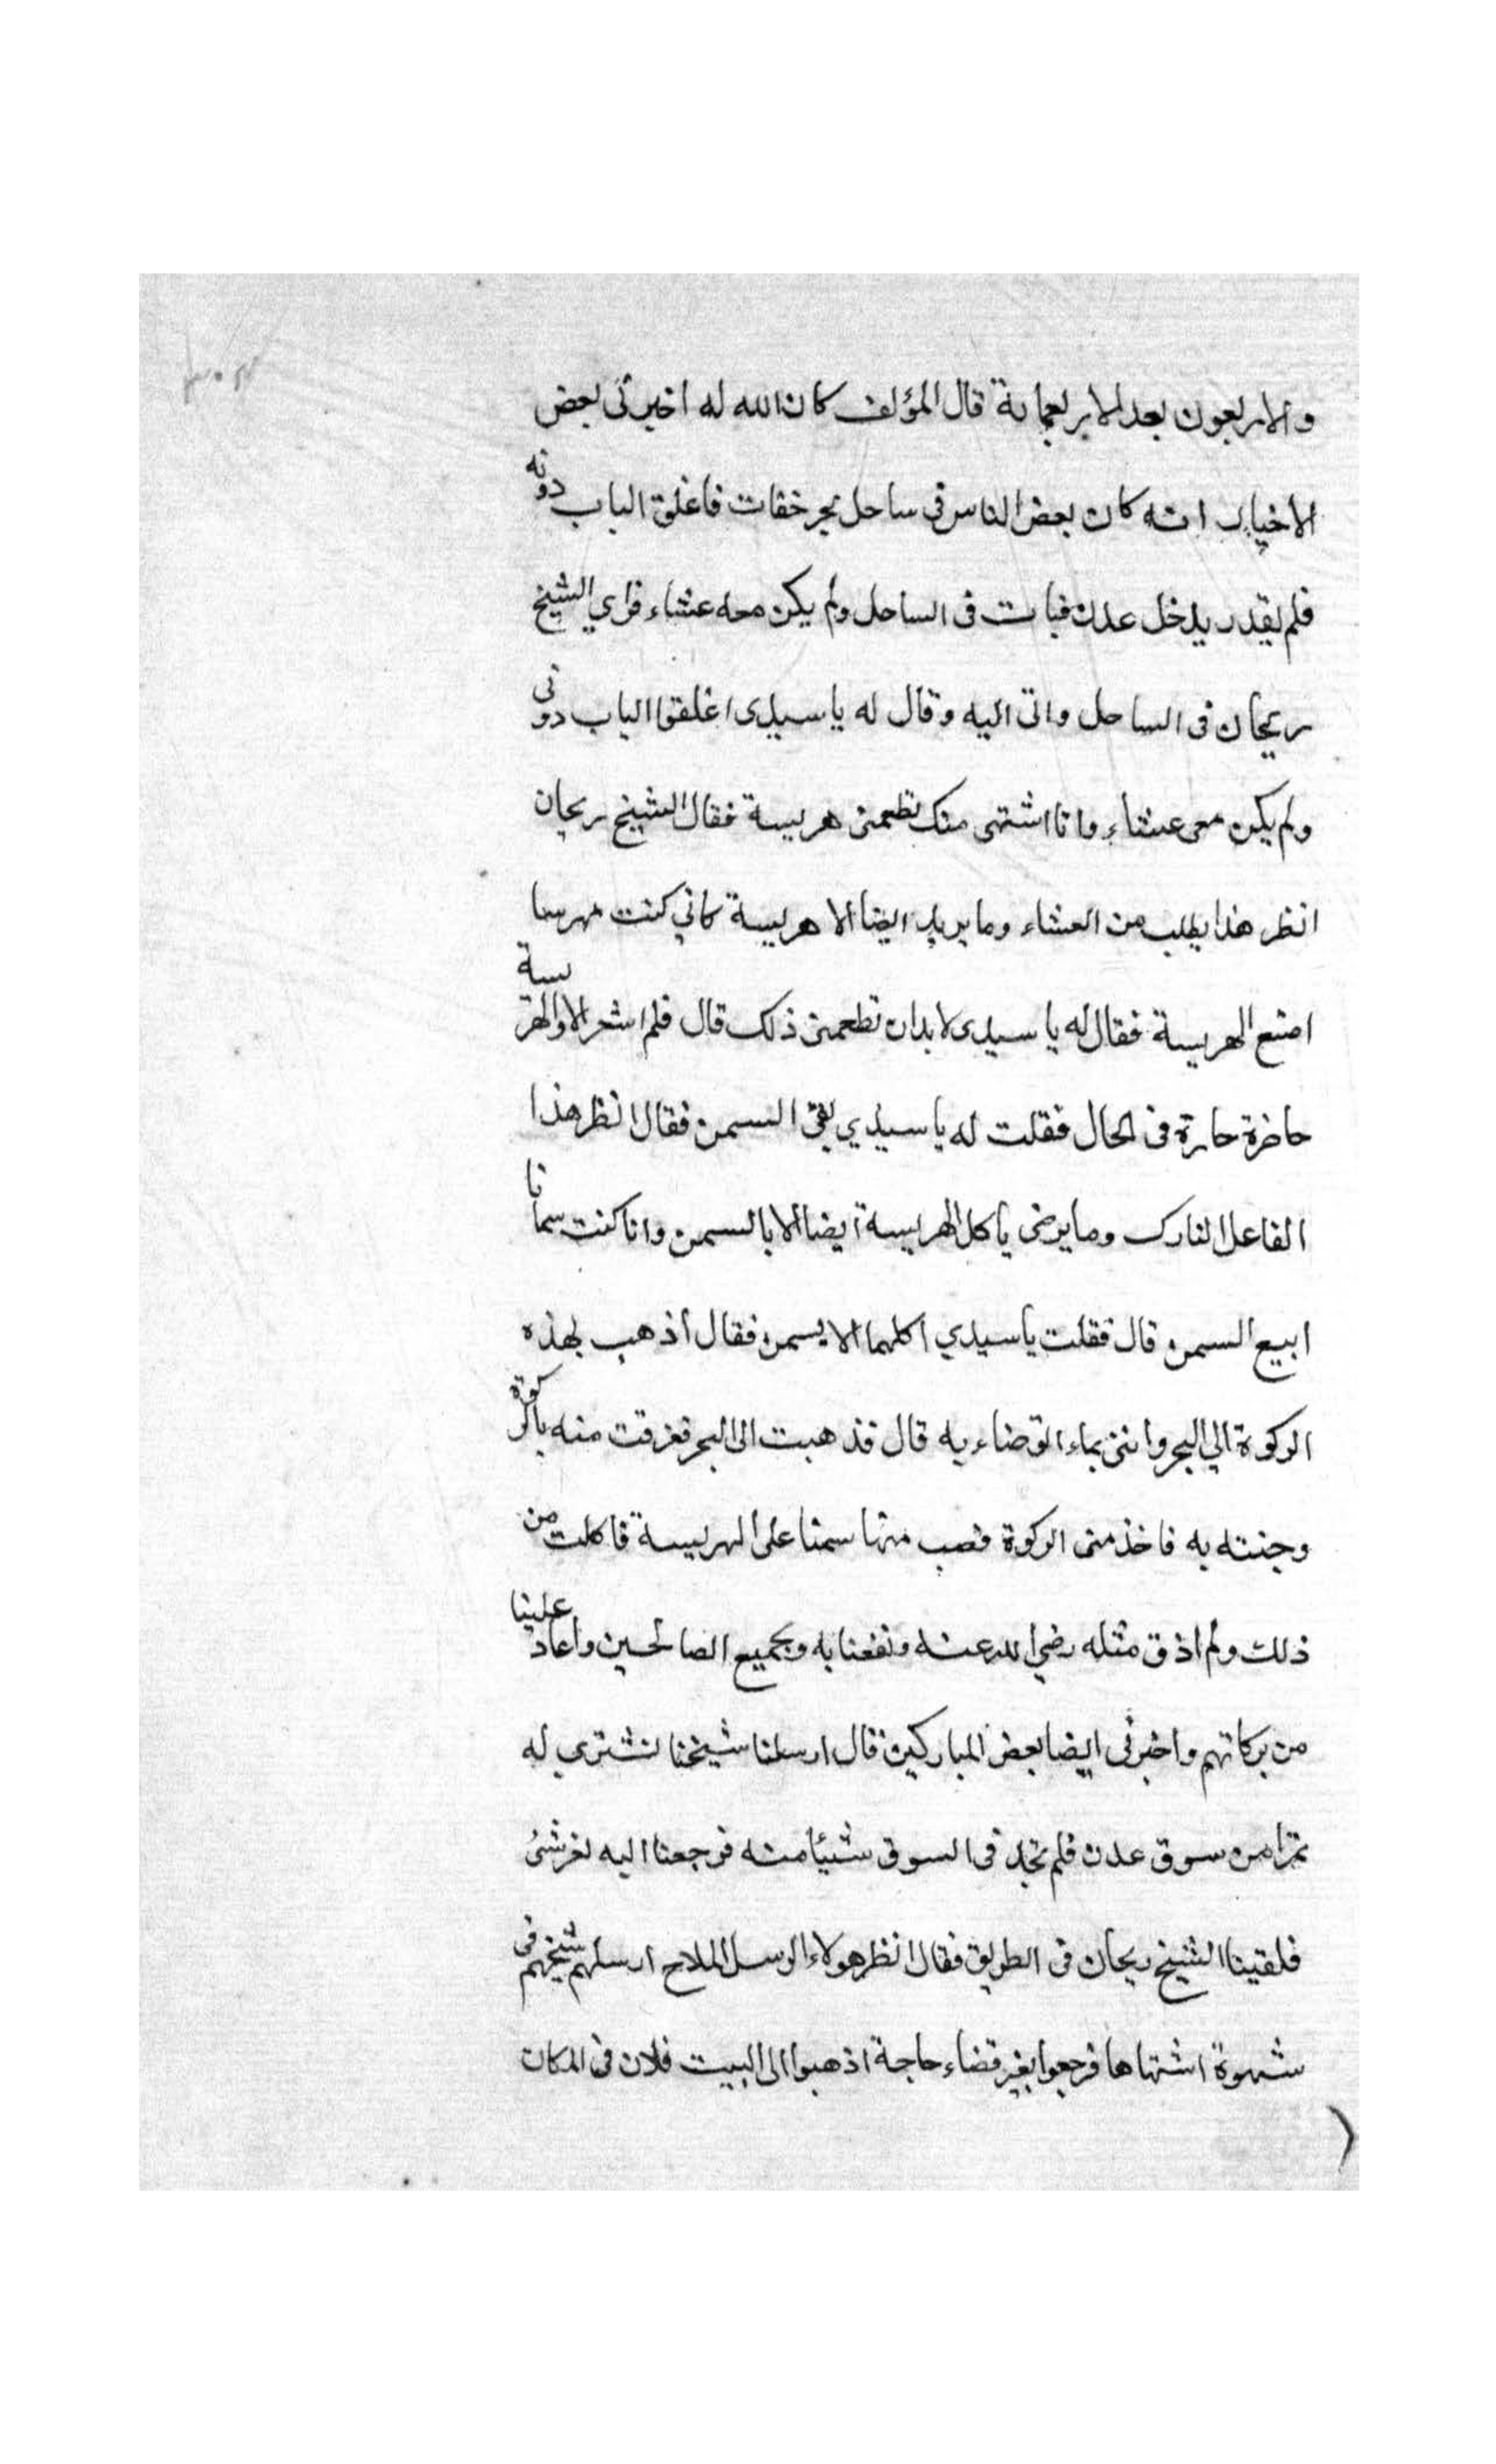 ٣٠٣
والاربعون بعد الاربعماية قال المؤلف كان الله له اخبرنى بعض
الاخيار انه كان بعض الناس فى ساحل بحر خقات فاغلق الباب دونه
فلم يقدر يدخل عدن فبات فى الساحل ولم يكن معه عشاء فراي الشيخ
ريحان فى الساحل واتى اليه وقال له يا سيدى اغلقوا الباب دونى
ولم يكن معى عشاء وانا اشتهى منك تطعمنى هريسة فقال الشيخ ريحان
انظر هذا يطلب من العشاء وما يريد ايضا الا هريسة كاني كنت مهرسا
اصنع الهريسة فقال له يا سيدى لابد ان تطعمنى ذلك قال فلم اشعر الا والهريسة
حاضرة حارة فى الحال فقلت له يا سيدي بقى السمن فقال انظر هذا
الفاعل التارك وما يرضى يأكل الهريسة ايضا الا بالسمن وانا كنت سمانا
ابيع السمن قال فقلت يا سيدي اكلهما الا بسمن فقال اذهب بهذه
الركوة الي البحر واتنى بماء اتوضاء به قال فذهبت الى البحر فغرفت منه بالركوة
وجئته به فاخذ منى الركوة فصب منها سمنا على الهريسة فاكلت من
ذلك ولم اذق مثله رضي الله عنه ونفعنا به وبجميع الصالحين واعاد علينا
من بركاتهم واخبرنى ايضا بعض المباركين قال ارسلنا شيخنا نشتري له
تمرا من سوق عدن فلم نجد فى السوق شيئا منه فرجعنا اليه بغير شئ
فلقينا الشيخ ريحان فى الطريق فقال انظر هولاء الرسل الملاح ارسلهم شيخهم فى
شهوة اشتهاها فرجعوا بغير قضاء حاجة اذهبوا الى البيت فلان فى المكان